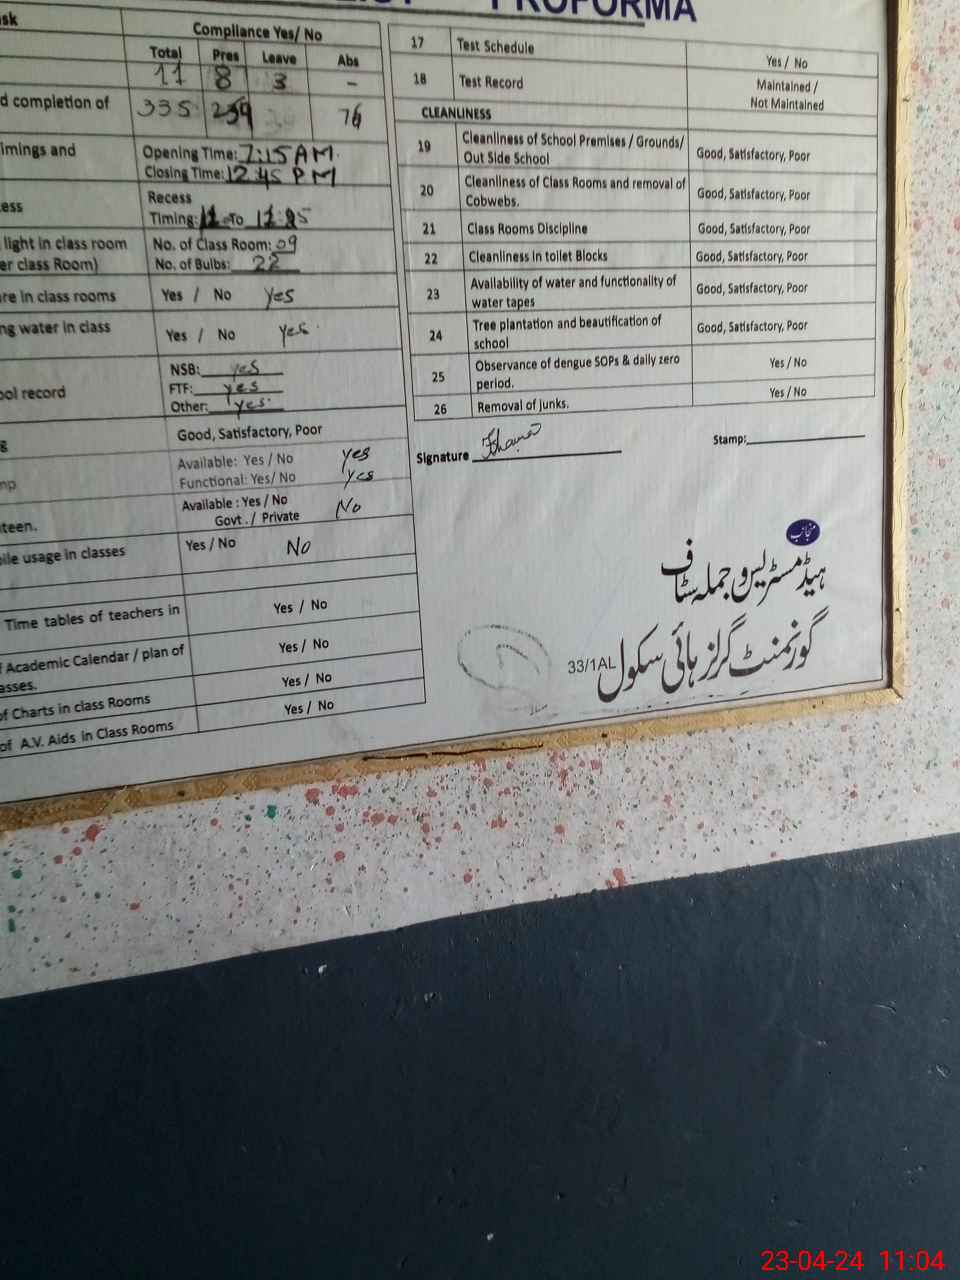 PROFORMA
Compliance Yes/ No
Total Pres Leave Abs
11 8 3 -
d completion of 335 259 76
imings and
Opening Time: 7:15 AM.
Closing Time: 12:45 PM
ess
Recess
Timing: 11 To 11:25
light in class room
er class Room)
No. of Class Room: 09
No. of Bulbs: 22
re in class rooms Yes / No Yes
ng water in class Yes / No Yes.
ool record
NSB: yes
FTF: yes
Other: yes.
g Good, Satisfactory, Poor
mp
Available: Yes / No yes
Functional: Yes/ No yes
teen.
Available : Yes / No
Govt . / Private No
ile usage in classes Yes / No No
Time tables of teachers in Yes / No
f Academic Calendar / plan of
asses. Yes / No
of Charts in class Rooms Yes / No
of A.V. Aids in Class Rooms Yes / No
17 Test Schedule Yes / No
18 Test Record Maintained /
Not Maintained
CLEANLINESS
19 Cleanliness of School Premises / Grounds/
Out Side School Good, Satisfactory, Poor
20 Cleanliness of Class Rooms and removal of
Cobwebs. Good, Satisfactory, Poor
21 Class Rooms Discipline Good, Satisfactory, Poor
22 Cleanliness in toilet Blocks Good, Satisfactory, Poor
23 Availability of water and functionality of
water tapes Good, Satisfactory, Poor
24 Tree plantation and beautification of
school Good, Satisfactory, Poor
25 Observance of dengue SOPs & daily zero
period. Yes / No
26 Removal of junks. Yes / No
Signature
Stamp:
منجانب
ہیڈ مسٹریس و جملہ سٹاف
گورنمنٹ گرلز ہائی سکول 33/1AL
23-04-24 11:04